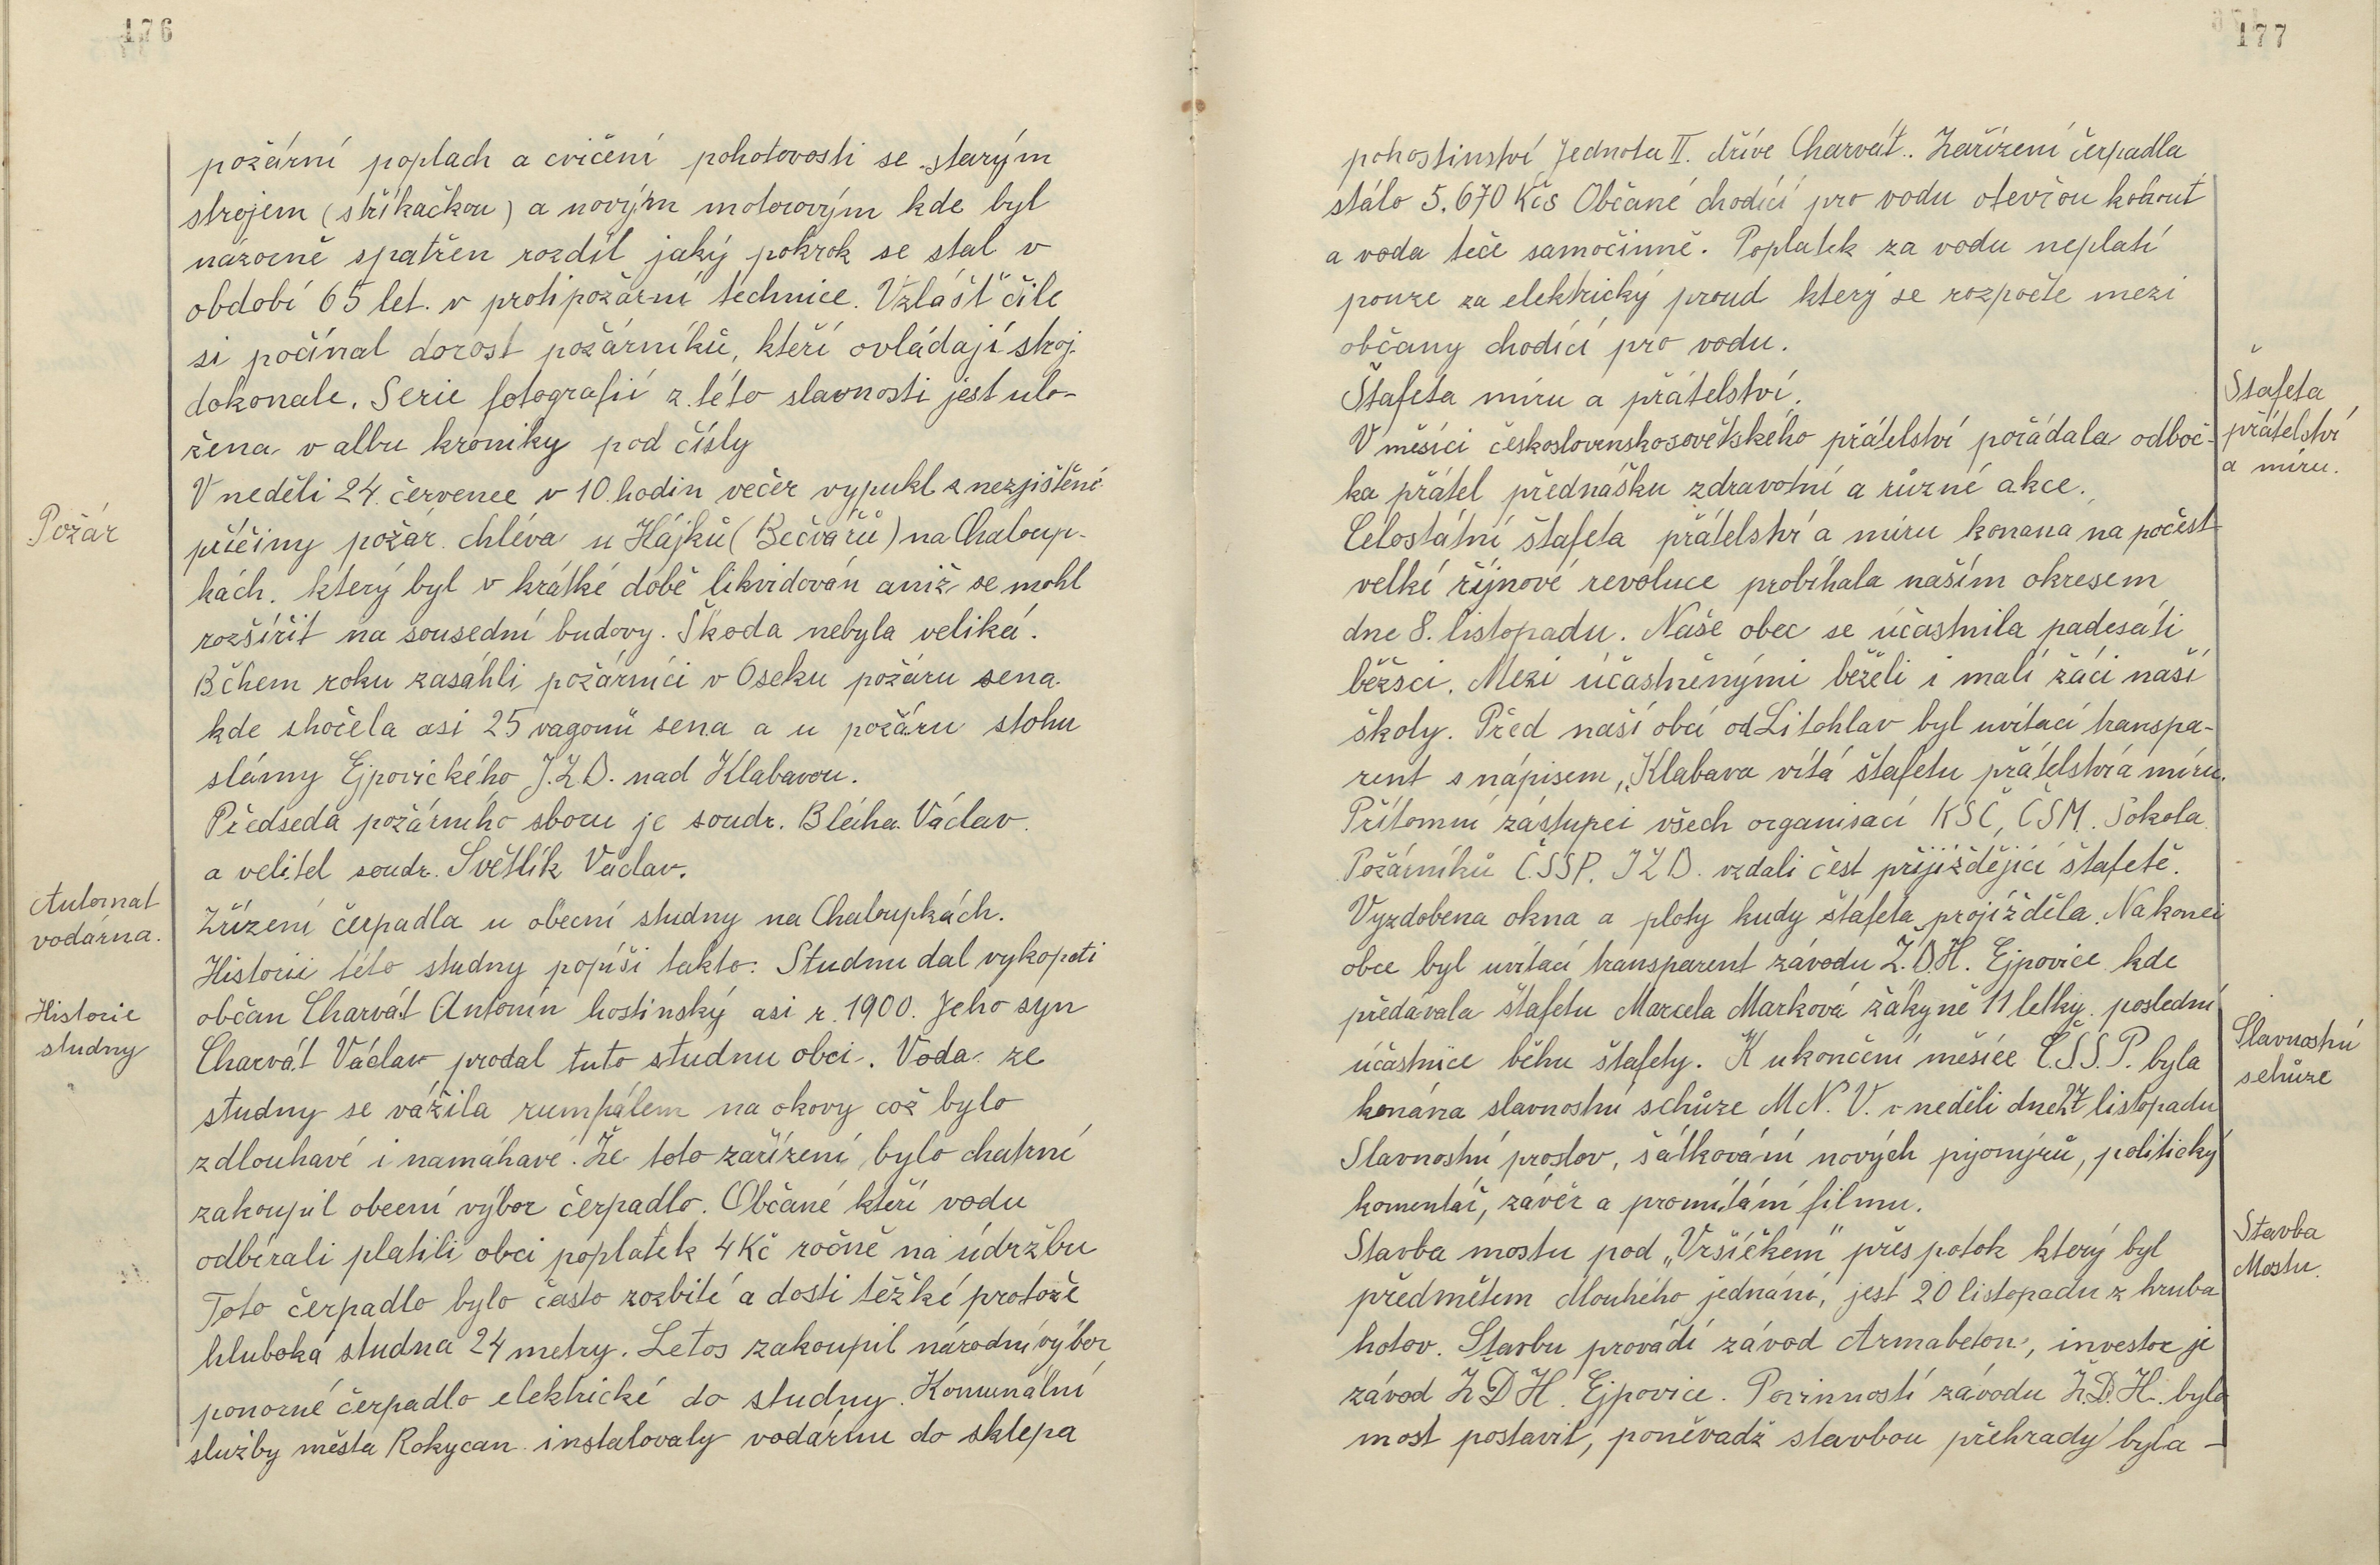 176
požární poplach a cvičení pohotovosti se starým
strojem (stříkačkou) a novým motorovým kde byl
názorně spatřen rozdíl jaký pokrok se stal v
období 65 let. v protipožární technice. Vzlášť čile
si počínal dorost požárníků, kteří ovládají stroj
dokonale. Serie fotografií z této slavnosti jest ulo-
žena v albu kroniky pod čísly
V neděli 24. července v 10. hodin večer vypukl z nezjištěné
Požár
příčiny požár chléva u Hájků (Bečvářů) na Chaloup-
kách. který byl v krátké době likvidován aniž se mohl
rozšířit na sousední budovy. Škoda nebyla veliká.
Během roku zasáhli požárníci v Oseku požáru sena
kde shořela asi 25 vagonů sena a u požáru stohu
slámy Ejpovického J.Z.D. nad Klabavou.
Předseda požárního sboru je soudr. Bláha Václav.
a velitel soudr. Světlík Václav.
Automat
vodárna.
Zřízení čerpadla u obecní studny na Chaloupkách.
Historii této studny popíši takto: Studnu dal vykopati
Historie
studny
občan Charvát Antonín hostinský asi r. 1900. Jeho syn
Charvát Václav prodal tuto studnu obci. Voda ze
studny se vážila rumpálem na okovy což bylo
zdlouhavé i namáhavé. Že toto zařízení bylo chatrné
zakoupil obecní výbor čerpadlo. Občané kteří vodu
odbírali platili obci poplatek 4 Kč ročně na údržbu
Toto čerpadlo bylo často rozbité a dosti těžké protože
hluboká studna 24 metry. Letos zakoupil národní výbor
ponorné čerpadlo elektrické do studny. Komunální
služby města Rokycan instalovaly vodárnu do sklepa
177
pohostinství Jednota II. dříve Charvát. Zařízení čerpadla
stálo 5.670 Kčs Občané chodící pro vodu otevřou kohout
a voda teče samočinně. Poplatek za vodu neplatí
pouze za elektrický proud který se rozpočte mezi
občany chodící pro vodu.
Štafeta míru a přátelství.
Štafeta
přátelství
a míru.
V měsíci československosovětského přátelství pořádala odboč-
ka přátel přednášku zdravotní a různé akce.
Celostátní štafeta přátelství a míru konaná na počest
velké říjnové revoluce probíhala naším okresem
dne 8. listopadu. Naše obec se účastnila padesáti
běžsci. Mezi účastněnými běželi i malí žáci naší
školy. Před naší obcí od Litohlav byl uvítací transpa-
rent s nápisem, „Klabava vítá štafetu přátelství a míru.
Přítomní zástupci všech organisací KSČ, ČSM. Sokola
Požárníků Č.S.S.P. JZD. vzdali čest přijíždějící štafetě.
Vyzdobena okna a ploty kudy štafeta projížděla. Na konci
obce byl uvítací transparent závodu Ž.D.H. Ejpovice kde
předávala štafetu Marcela Marková žákyně 11 letky. poslední
účastnice běhu štafety. K ukončení měsíce Č.S.S.P. byla
Slavnostní
schůze
konána slavnostní schůze M.N.V. v neděli dne 27 listopadu
Slavnostní proslov, šátkování nových pijonýrů, politický
komentář, závěr a promítání filmu.
Stavba
Mostu.
Stavba mostu pod „Vršíčkem" přes potok který byl
předmětem dlouhého jednání, jest 20 listopadu z hruba
hotov. Stavbu provádí závod Armabeton, investor je
závod Ž.D.H. Ejpovice. Povinností závodu Ž.D.H. bylo
most postavit, poněvadž stavbou přehrady byla –